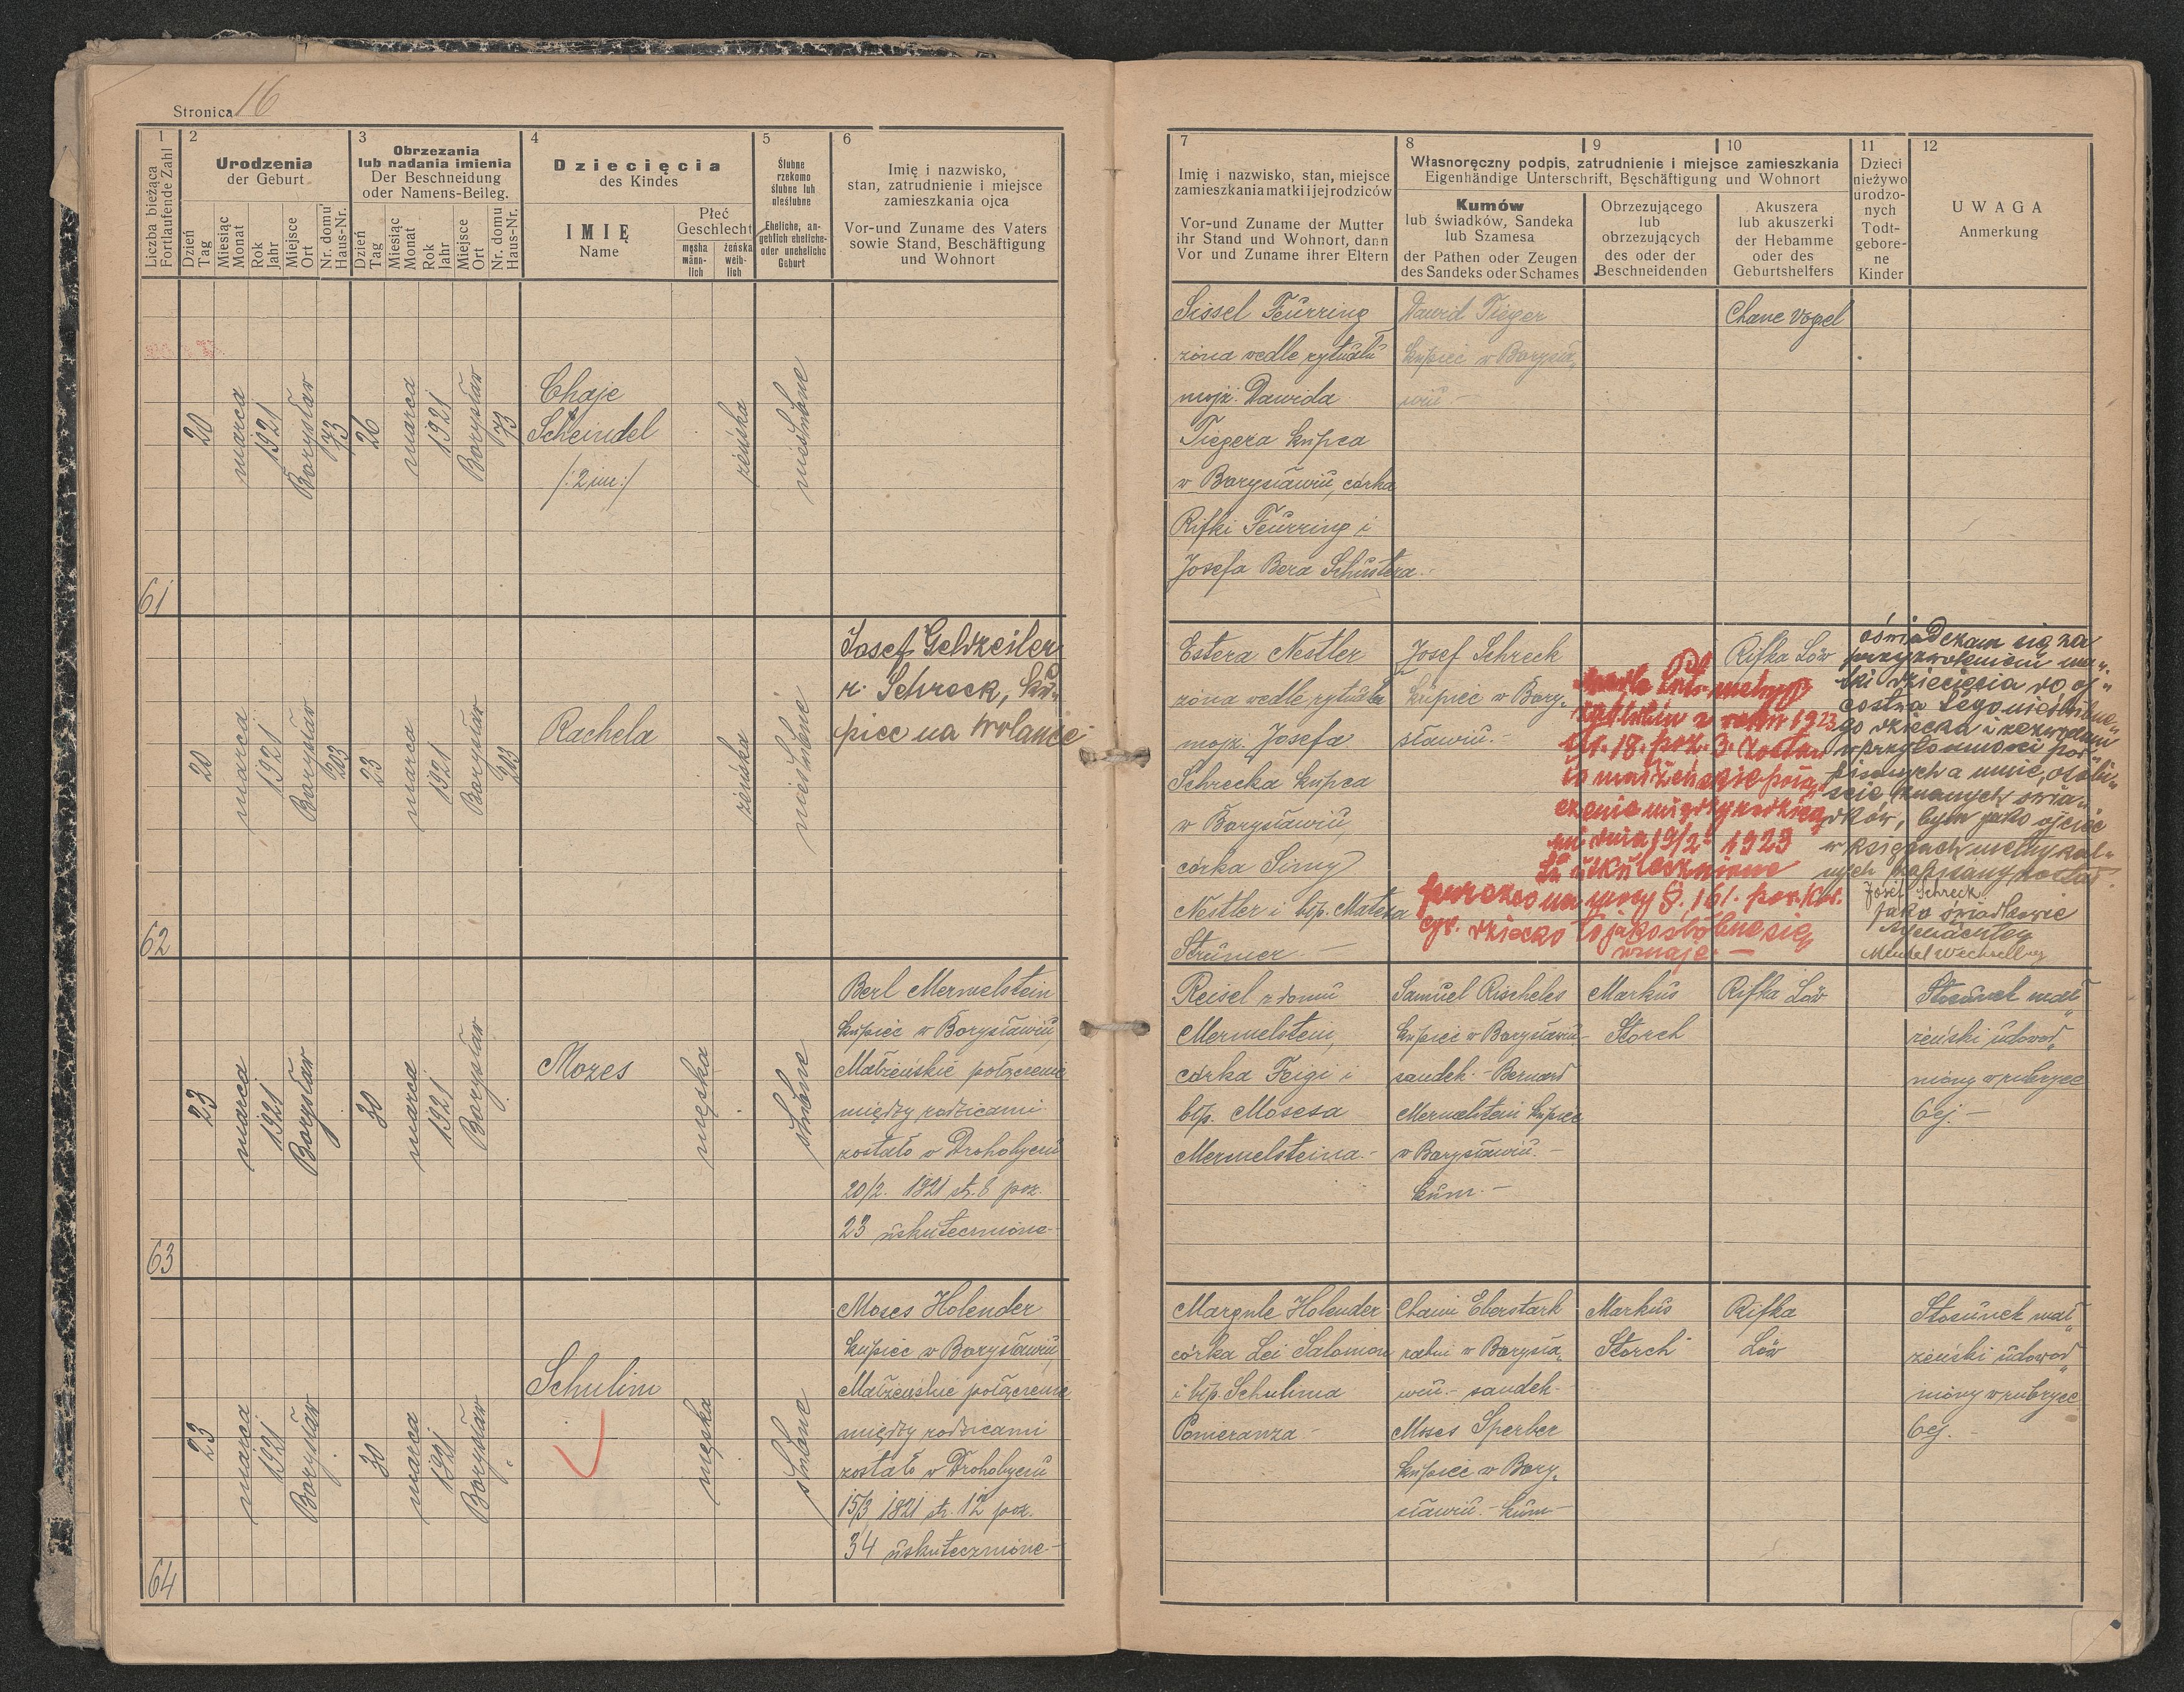 Stronica 16
1
Liczba bieżąca
Fortlaufende Zahl
2
Urodzenia
der Geburt
Dzień
Tag
Miesiąc
Monat
Rok
Jahr
Miejsce
Ort
Nr. domu
Haus-Nr.
3
Obrzezania
lub nadania imienia
Der Beschneidung
oder Namens-Beileg.
Dzień
Tag
Miesiąc
Monat
Rok
Jahr
Miejsce
Ort
Nr. domu
Haus-Nr.
4
Dziecięcia
des Kindes
IMIĘ
Name
Płeć
Geschlecht
męska
männ-
lich
żeńska
weib-
lich
5
Ślubne
rzekomo
ślubne lub
nieślubne
Eheliche, an-
geblich eheliche-
oder uneheliche
Geburt
6
Imię i nazwisko,
stan, zatrudnienie i miejsce
zamieszkania ojca
Vor-und Zuname des Vaters
sowie Stand, Beschäftigung
und Wohnort
7
Imię i nazwisko, stan, miejsce
zamieszkania matki i jej rodziców
Vor-und Zuname der Mutter
ihr Stand und Wohnort, dann
Vor und Zuname ihrer Eltern
8
9
10
Własnoręczny podpis, zatrudnienie i miejsce zamieszkania
Eigenhändige Unterschrift, Beschäftigung und Wohnort
Kumów
lub świadków, Sandeka
lub Szamesa
der Pathen oder Zeugen
des Sandeks oder Schames
Obrzezującego
lub
obrzezujących
des oder der
Beschneidenden
Akuszera
lub akuszerki
der Hebamme
oder des
Geburtshelfers
11
Dzieci
nieżywo
urodzo-
nych
Todt-
gebore-
ne
Kinder
12
UWAGA
Anmerkung
61
20
marca
1921
Borysław
73
26
marca
1921
Borysław
73
Chaje
Scheindel
/:2 im:/
żeńska
nieślubne
Sissel Feürring
żona wedle rytuału
mojż. Dawida
Tiegera kupca
w Borysławiu, córka
Rifki Feürring i
Josefa Bera Schustera.-
Dawid Tieger
kupiec w Borysła„
wiu.-
Chane Vogel
62
20
marca
1921
Borysław
203
23
marca
1921
Borysław
203
Rachela
żeńska
nieślubne
Josef Geldzeiler
r. Schreck, ku„
piec na Wolance
Estera Nestler
żona wedle rytuału
mojż. Josefa
Schrecka kupca
w Borysławiu,
córka Simy
Nestler i błp. Matesa
Strümer -
Josef Schreck
kupiec w Bory„
sławiu.-
Rifka Löw
zaślubin z roku 1923
str. 18. poz. 3. zostało
to małżeńskie połą„
czenie między rodzica„
mi dnia 19/2 1923
uskutecznione
przezco na mocy §. 161. pow. Kod.
cyw. dziecko to jako ślubne się
uznaje. -
oświadczam się za
przyzwoleniem mat„
ki dziecięcia do oj„
costwa tego nieślubne„
go dziecka i zezwalam
w przytomności pod„
pisanych a mnie osobi„
ście znanych świa„
dków, bym jako ojciec
w księgach metrykal„
nych zapisany został.
Josef Schreck
jako świadkowie
Mendel Wechselberg
63
23
marca
1921
Borysław
30
marca
1921
Borysław
Mozes
męska
ślubne
Berl Mermelstein
kupiec w Borysławiu,
Małżeńskie połączenie
między rodzicami
zostało w Drohobyczu
20/2. 1921 str. 8 poz.
23 uskutecznione-
Reisel z domu
Mermelstein,
córka Feigi i
błp. Mosesa
Mermelsteina.-
Samuel Rischeles
kupiec w Borysławiu-
sandek.- Bernard
Mermelstein kupiec
w Borysławiu.-
kum.-
Markus
Storch
Rifka Löw
Stosunek mał„
żeński udowod„
niony w rubryce
6ej.-
64
23
marca
1921
Borysław
30
marca
1921
Borysław
Schulim
męska
ślubne
Moses Holender
kupiec w Borysławiu,
Małżeńskie połączenie
między rodzicami
zostało w Drohobyczu
15/3 1921 str. 12 poz.
34 uskutecznione.-
Margule Holender
córka Lei Salomon
i błp. Schulima
Pomeranza -
Chaim Eberstark
rabin w Borysła„
wiu.- sandek-
Moses Sperber
kupiec w Bory„
sławiu.- kum-
Markus
Storch
Rifka
Löw
Stosunek mał„
żeński udowod„
niony w rubryce
6ej.-